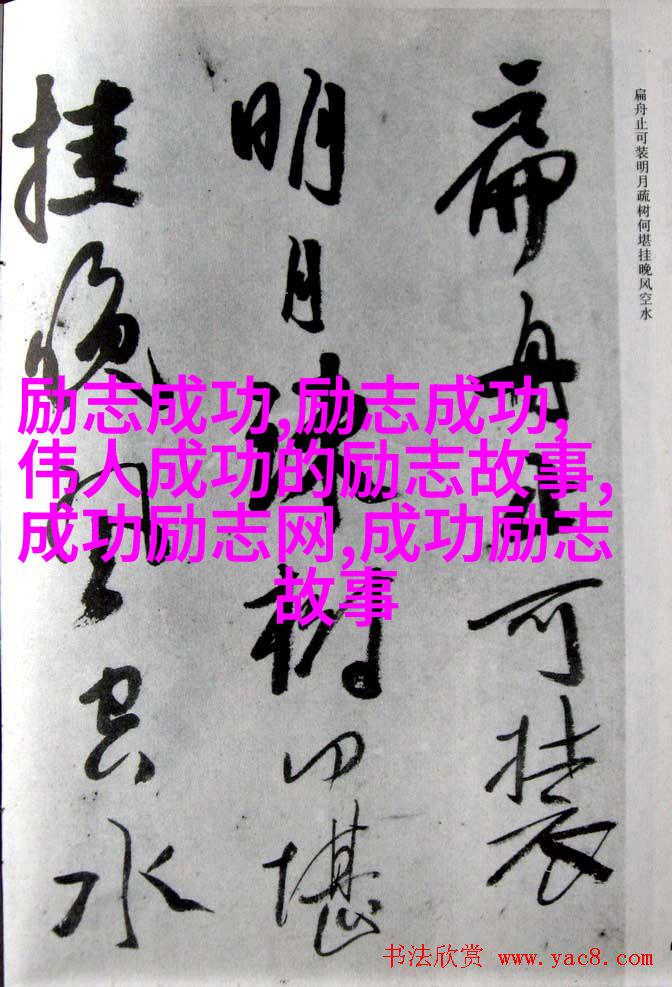 扁舟止可装
明月疏树何堪
挂晚风空水
扁舟止可装明月疏树何堪挂晚风空水
励志成功,励志成功,
伟人成功的励志故事,
成功励志网,成功励志
故事
书法欣赏 www.yac8.com